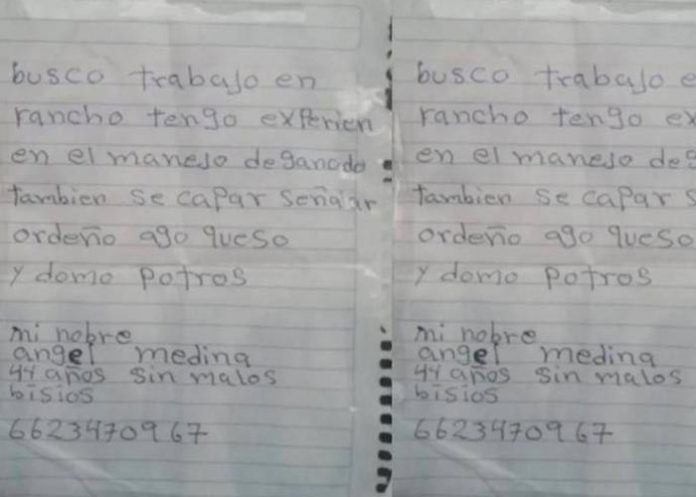 busco trabajo en
rancho tengo experien
en el manejo de ganado
tambien se capar señalar
ordeño ago queso
y domo potros
mi nobre
angel medina
44 años sin malos
bisios
6623470967
busco trabajo e
rancho tengo ex
en el manejo de g
tambien se capar s
ordeño ago queso
y domo potros
mi nobre
angel medina
44 años sin malos
bisios
6623470967